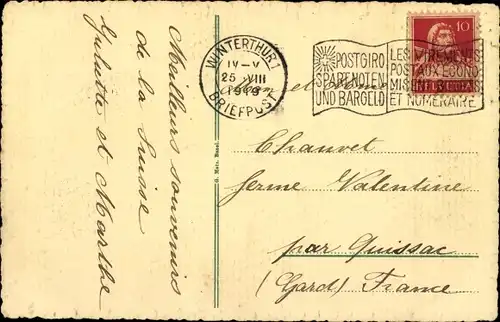 Meilleurs souvenirs
de la Suisse
Juliette et Marthe
WINTERTHUR 1
IV-V
25 VIII
BRIEFPOST
POSTGIRO
SPART NOTEN
UND BARGELD
LES VIREMENTS
POSTAUX ECONO
ET NUMERAIRE
10
HELVETIA
et
Chauvet
ferme Valentine
par Quissac
(Gard) France